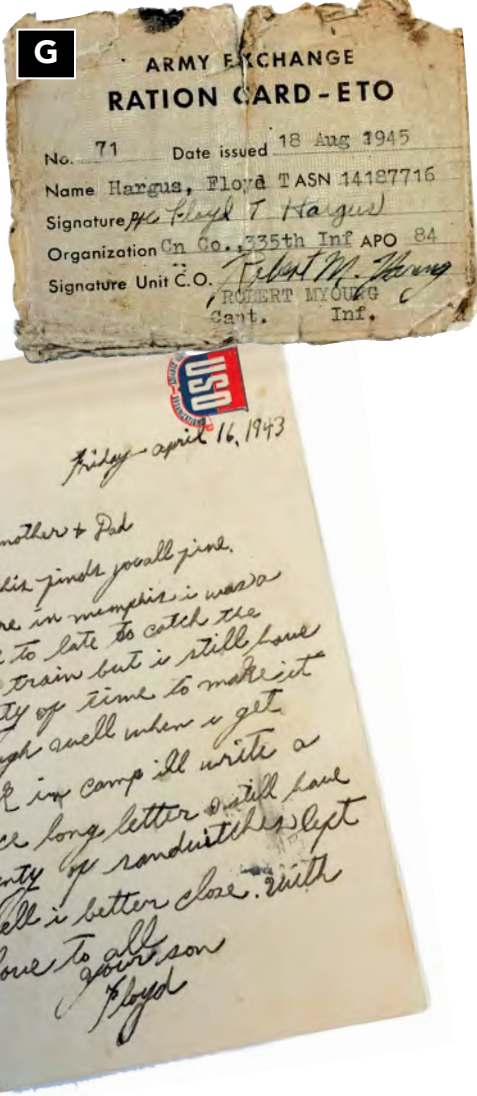 G
ARMY EXCHANGE
RATION CARD-ETO
No. 71 Date issued 18 Aug 1945
Name Hargus, Floyd T ASN 14187716
Signature Pfc Floyd T Hargus
Organization Cn Co., 335th Inf APO 84
Signature Unit C.O. Robert M. Young
ROBERT MYOUNG
Capt. Inf.
USO
Friday april 16, 1943
mother & Dad
his finds you all fine.
re in memphis i was a
to late to catch the
train but i still have
ty of time to make it
gh well when i get
k in camp ill write a
ce long letter i still have
nty of sandwitches left
ell i better close. With
love to all
your son
Floyd